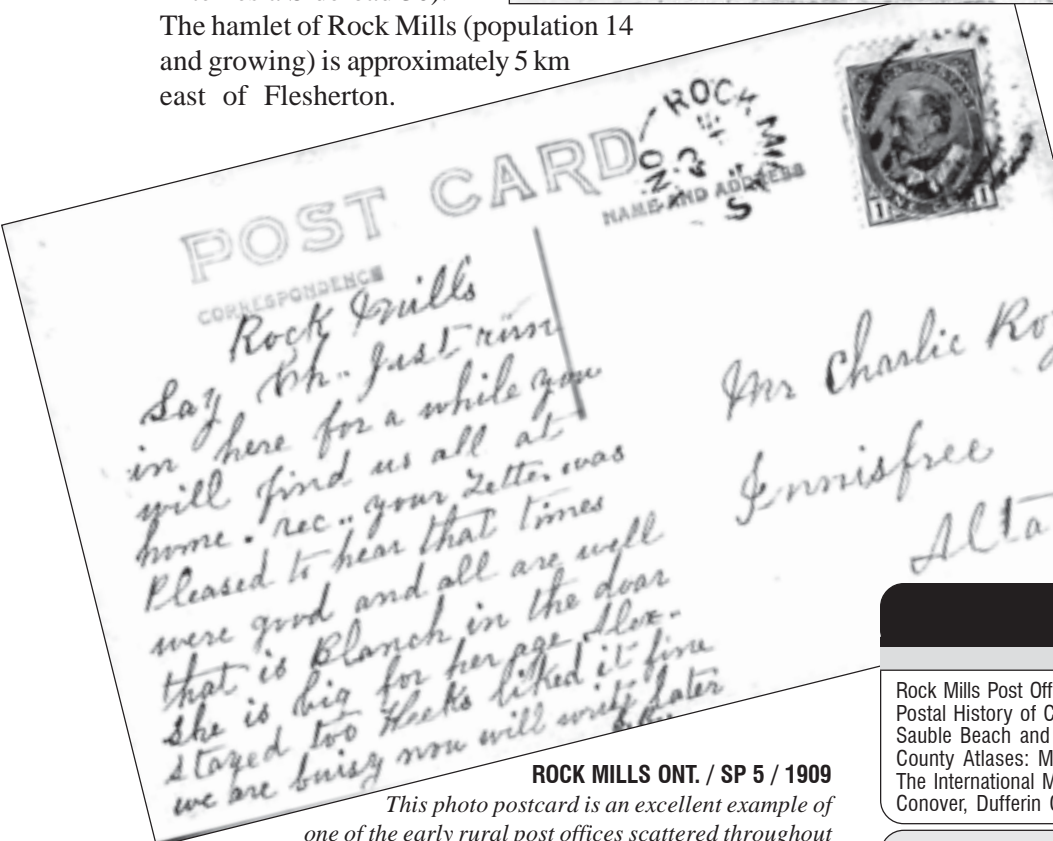 The hamlet of Rock Mills (population 14
and growing) is approximately 5 km
east of Flesherton.
POST CARD
CORRESPONDENCE
NAME AND ADDRESS
ROCK MILLS
ON
S
1 1
Rock Mills
Say Ch.. Just run
in here for a while you
will find us all at
home. rec.. your Letter was
Pleased to hear that times
were good and all are well
that is Blanch in the doar
She is big for her age Alex.
stayed two Weeks liked it fine
we are buisy now will write later
Mr Charlie Ro
Innisfree
Alta
ROCK MILLS ONT. / SP 5 / 1909
This photo postcard is an excellent example of
one of the early rural post offices scattered throughout
Rock Mills Post Off
Postal History of C
Sauble Beach and
County Atlases: M
The International M
Conover, Dufferin